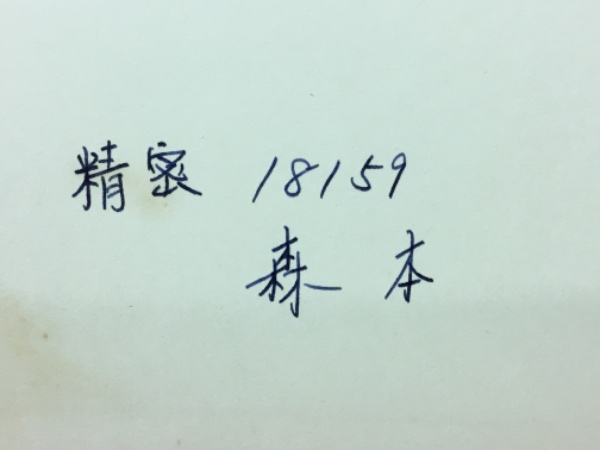 精密 18159
森本